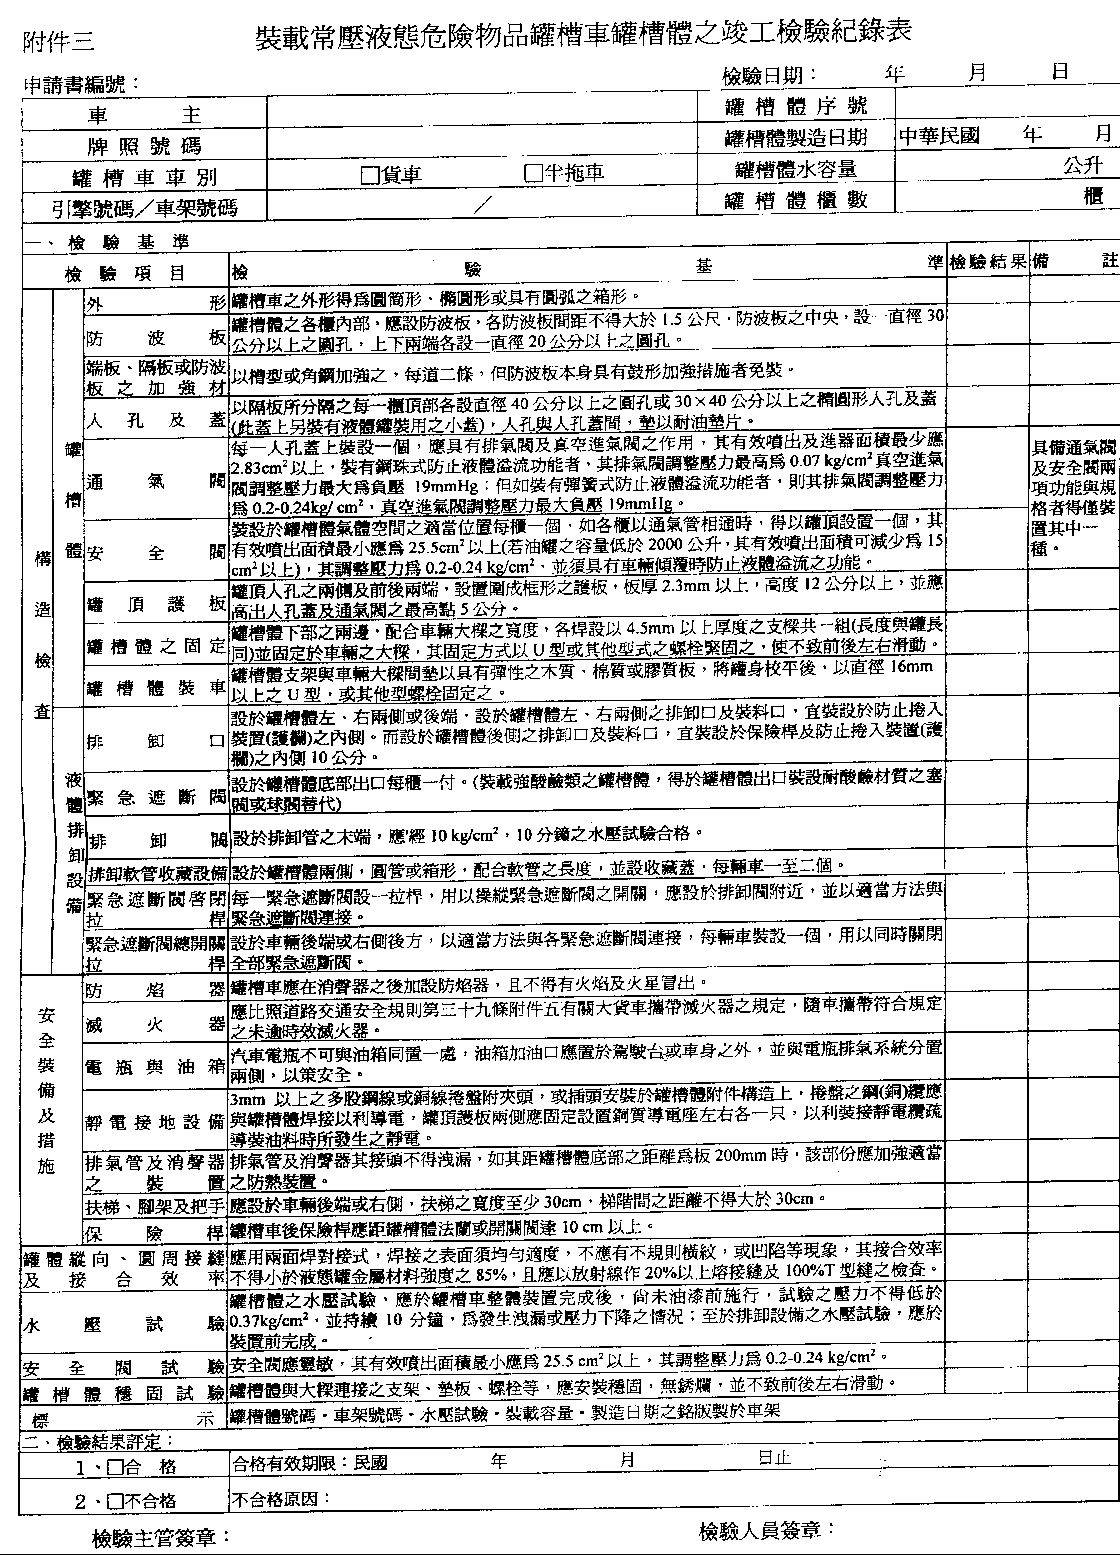 附件三
裝載常壓液態危險物品罐槽車罐槽體之竣工檢驗紀錄表
申請書編號：
檢驗日期：　年　月　日
車主　罐槽體序號
牌照號碼　罐槽體製造日期　中華民國　年　月
罐槽車車別　□貨車　□半拖車　罐槽體水容量　公升
引擎號碼／車架號碼　／　罐槽體櫃數　櫃
一、檢驗基準
檢驗項目　檢驗基準　檢驗結果　備註
構造檢查
罐槽體
外形　罐槽車之外形得為圓筒形、橢圓形或具有圓弧之箱形。
防波板　罐槽體之各櫃內部，應設防波板，各防波板間距不得大於1.5公尺，防波板之中央，設一直徑30
公分以上之圓孔，上下兩端各設一直徑20公分以上之圓孔。
端板、隔板或防波
板之加強材　以槽型或角鋼加強之，每道二條，但防波板本身具有鼓形加強措施者免裝。
人孔及蓋　以隔板所分隔之每一櫃頂部各設直徑40公分以上之圓孔或30×40公分以上之橢圓形人孔及蓋
(此蓋上另裝有液體罐裝用之小蓋)，人孔與人孔蓋間，墊以耐油墊片。
通氣閥　每一人孔蓋上裝設一個，應具有排氣閥及真空進氣閥之作用，其有效噴出及進器面積最少應
2.83cm²以上，裝有鋼珠式防止液體溢流功能者，其排氣閥調整壓力最高為0.07 kg/cm²真空進氣
閥調整壓力最大為負壓 19mmHg；但如裝有彈簧式防止液體溢流功能者，則其排氣閥調整壓力
為0.2-0.24kg/ cm²，真空進氣閥調整壓力最大負壓19mmHg。
具備通氣閥
及安全閥兩
項功能與規
格者得僅裝
置其中一
種。
安全閥　裝設於罐槽體氣體空間之適當位置每櫃一個，如各櫃以通氣管相通時，得以罐頂設置一個，其
有效噴出面積最小應為25.5cm²以上(若油罐之容量低於2000公升，其有效噴出面積可減少為15
cm²以上)，其調整壓力為0.2-0.24 kg/cm²，並須具有車輛傾覆時防止液體溢流之功能。
罐頂護板　罐頂人孔之兩側及前後兩端，設置圍成框形之護板，板厚2.3mm以上，高度12公分以上，並應
高出人孔蓋及通氣閥之最高點5公分。
罐槽體之固定　罐槽體下部之兩邊，配合車輛大樑之寬度，各焊設以4.5mm以上厚度之支樑共一組(長度與罐長
同)並固定於車輛之大樑，其固定方式以U型或其他型式之螺栓緊固之，使不致前後左右滑動。
罐槽體裝車　罐槽體支架與車輛大樑間墊以具有彈性之木質、棉質或膠質板，將罐身校平後，以直徑16mm
以上之U型，或其他型螺栓固定之。
液體排卸設備
排卸口　設於罐槽體左、右兩側或後端，設於罐槽體左、右兩側之排卸口及裝料口，宜裝設於防止捲入
裝置(護欄)之內側。而設於罐槽體後側之排卸口及裝料口，宜裝設於保險桿及防止捲入裝置(護
欄)之內側10公分。
緊急遮斷閥　設於罐槽體底部出口每櫃一付。(裝載強酸鹼類之罐槽體，得於罐槽體出口裝設耐酸鹼材質之塞
閥或球閥替代)
排卸閥　設於排卸管之末端，應經10 kg/cm²，10分鐘之水壓試驗合格。
排卸軟管收藏設備　設於罐槽體兩側，圓管或箱形，配合軟管之長度，並設收藏蓋，每輛車一至二個。
緊急遮斷閥啓閉
拉桿　每一緊急遮斷閥設一拉桿，用以操縱緊急遮斷閥之開關，應設於排卸閥附近，並以適當方法與
緊急遮斷閥連接。
緊急遮斷閥總開關
拉桿　設於車輛後端或右側後方，以適當方法與各緊急遮斷閥連接，每輛車裝設一個，用以同時關閉
全部緊急遮斷閥。
安全裝備及措施
防焰器　罐槽車應在消聲器之後加設防焰器，且不得有火焰及火星冒出。
滅火器　應比照道路交通安全規則第三十九條附件五有關大貨車攜帶滅火器之規定，隨車攜帶符合規定
之未逾時效滅火器。
電瓶與油箱　汽車電瓶不可與油箱同置一處，油箱加油口應置於駕駛台或車身之外，並與電瓶排氣系統分置
兩側，以策安全。
靜電接地設備　3mm以上之多股鋼線或銅線捲盤附夾頭，或插頭安裝於罐槽體附件構造上，捲盤之鋼(銅)纜應
與罐槽體焊接以利導電，罐頂護板兩側應固定設置銅質導電座左右各一只，以利裝接靜電纜疏
導裝油料時所發生之靜電。
排氣管及消聲器
之裝置　排氣管及消聲器其接頭不得洩漏，如其距罐槽體底部之距離為板200mm時，該部份應加強適當
之防熱裝置。
扶梯、腳架及把手　應設於車輛後端或右側，扶梯之寬度至少30cm，梯階間之距離不得大於30cm。
保險桿　罐槽車後保險桿應距罐槽體法蘭或開關閥達10 cm以上。
罐體縱向、圓周接縫
及接合效率　應用兩面焊對接式，焊接之表面須均勻適度，不應有不規則橫紋，或凹陷等現象，其接合效率
不得小於液態罐金屬材料強度之85%，且應以放射線作20%以上熔接縫及100%T型縫之檢查。
水壓試驗　罐槽體之水壓試驗、應於罐槽車整體裝置完成後，尚未油漆前施行，試驗之壓力不得低於
0.37kg/cm²，並持續10分鐘，為發生洩漏或壓力下降之情況；至於排卸設備之水壓試驗，應於
裝置前完成。
安全閥試驗　安全閥應靈敏，其有效噴出面積最小應為25.5 cm²以上，其調整壓力為0.2-0.24 kg/cm²。
罐槽體穩固試驗　罐槽體與大樑連接之支架、墊板、螺栓等，應安裝穩固，無銹爛，並不致前後左右滑動。
標示　罐槽體號碼、車架號碼、水壓試驗、裝載容量、製造日期之銘版製於車架
二、檢驗結果評定：
1、□合格　合格有效期限：民國　年　月　日止
2、□不合格　不合格原因：
檢驗主管簽章：　檢驗人員簽章：